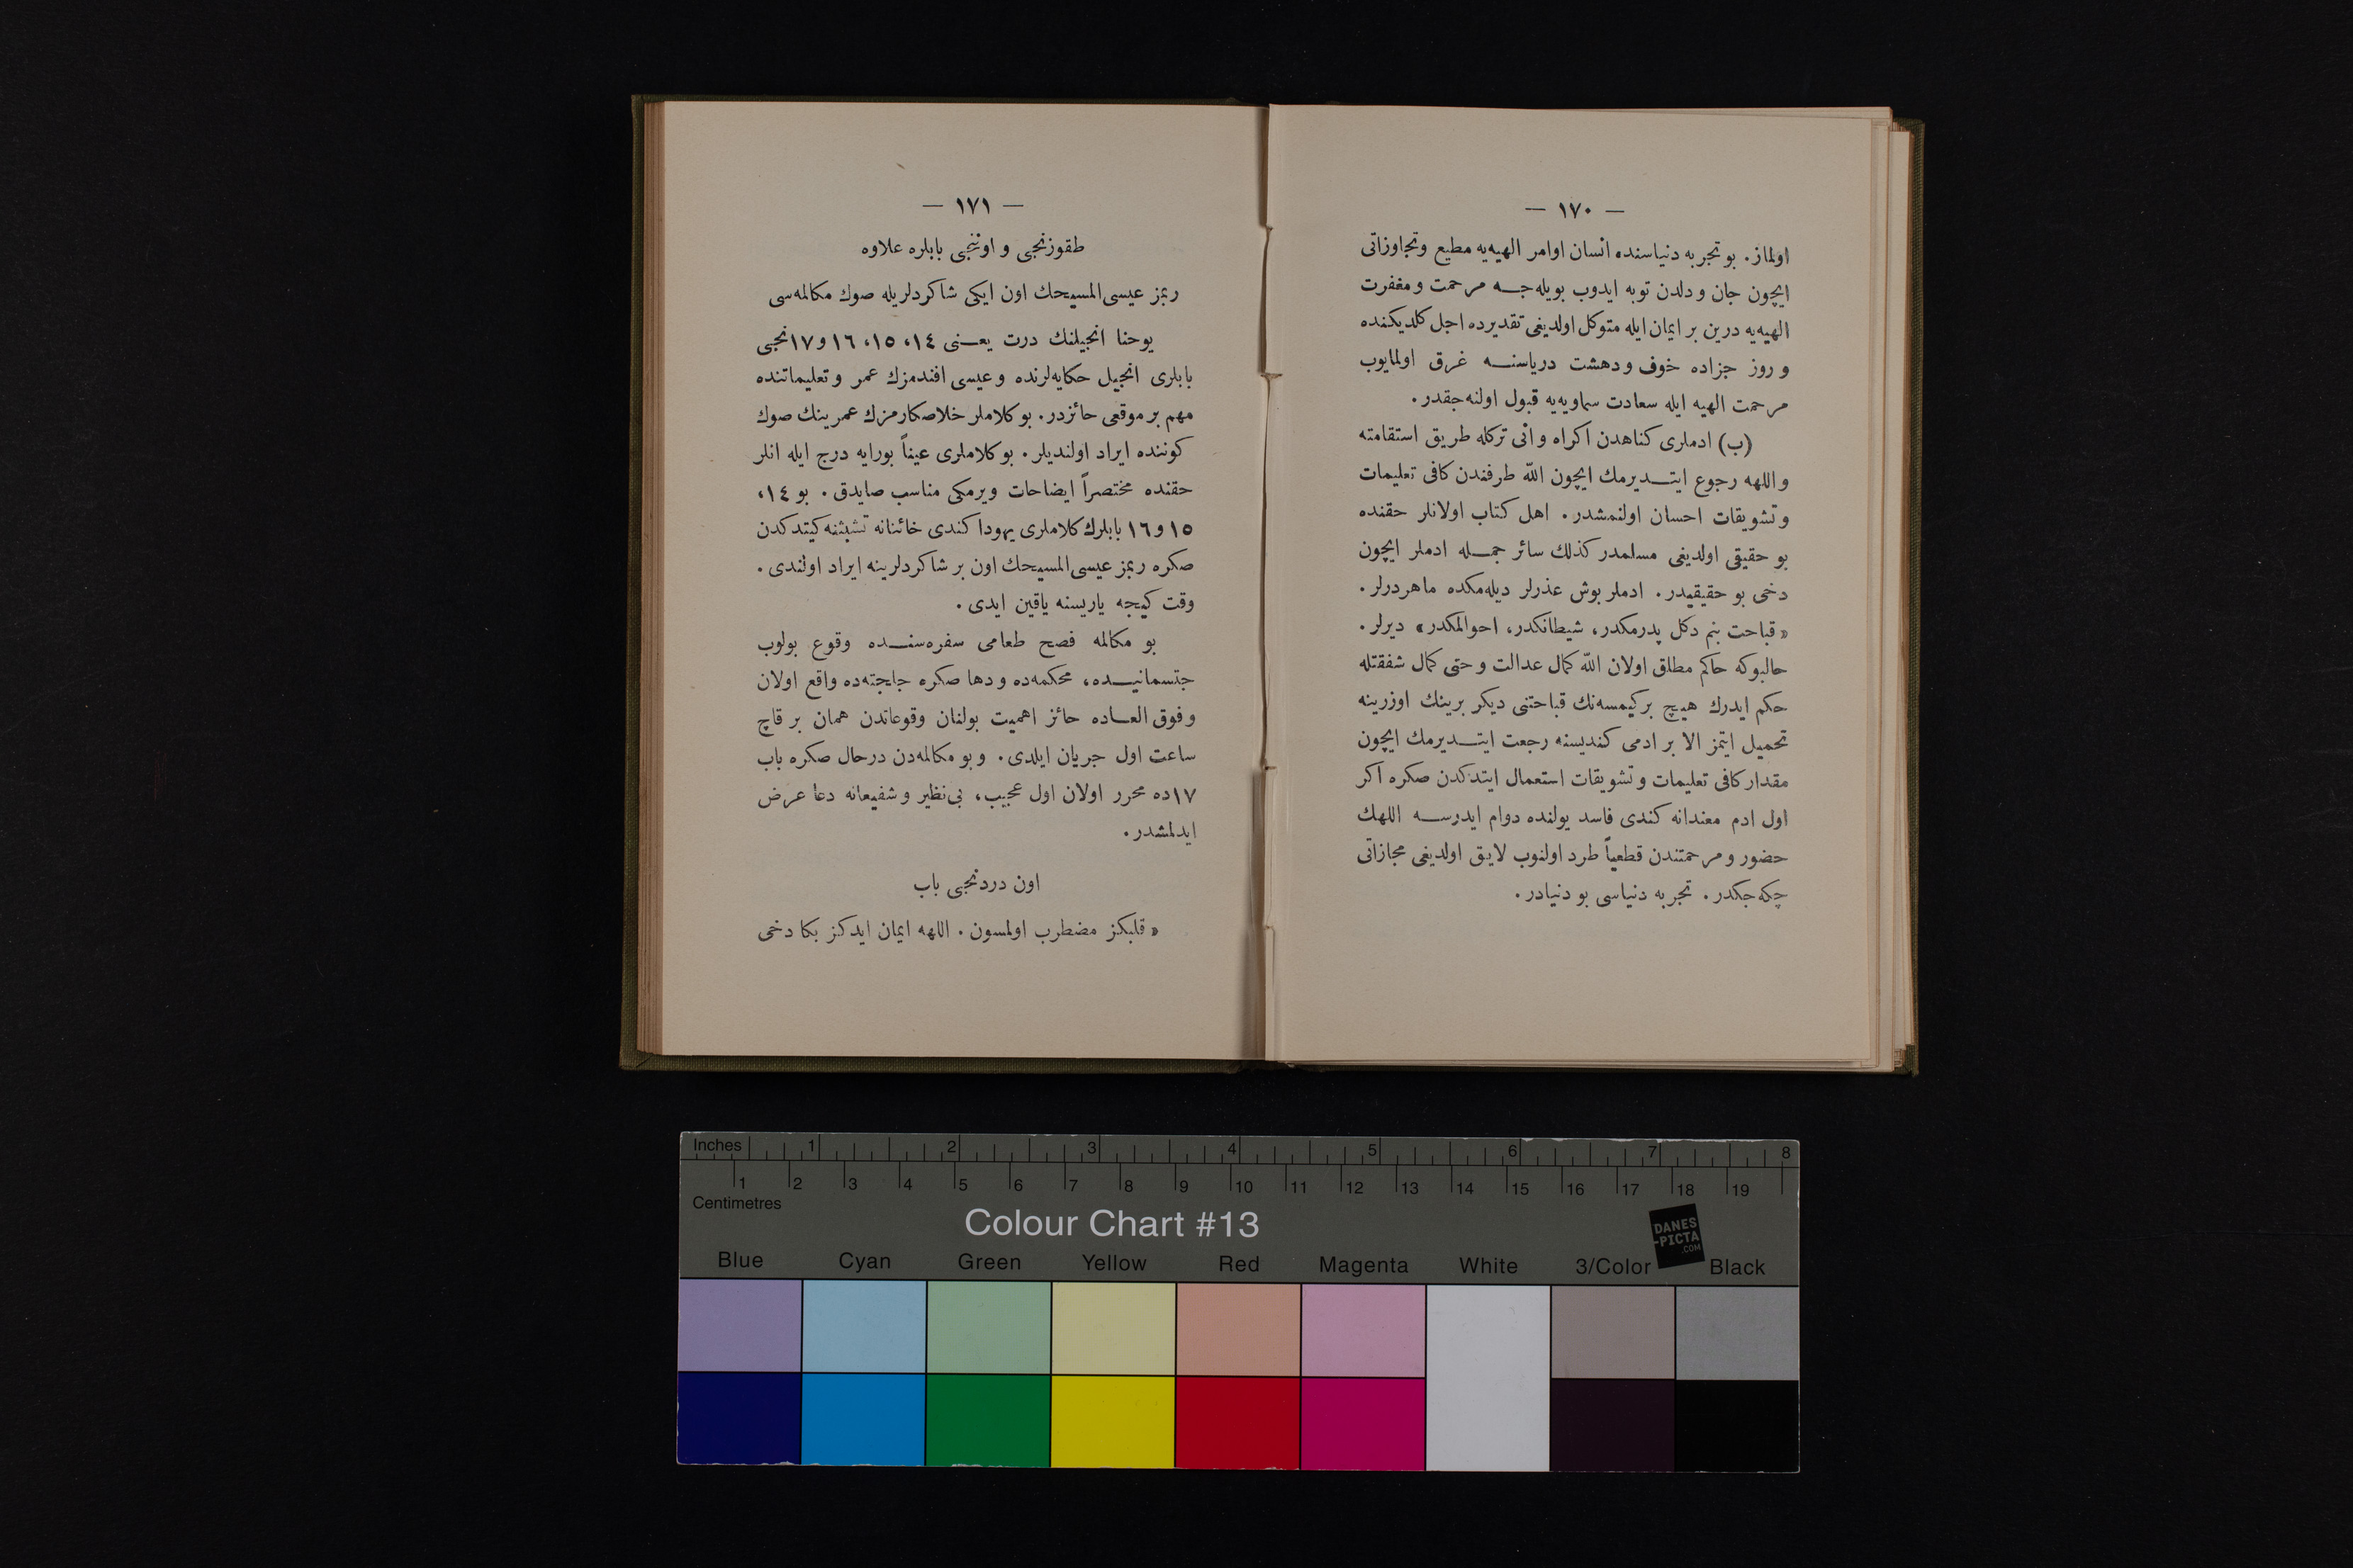 — ١٧٠ —
اولماز. بو تجربه دنیاسنده انسان اوامر الهیه‌یه مطیع وتجاوزاتی
ایچون جان و دلدن توبه ایدوب بویله‌جه مرحمت و مغفرت
الهیه‌یه درین بر ایمان ایله متوکل اولدیغی تقدیرده اجل کلدیکنده
و روز جزاده خوف و دهشت دریاسنه غرق اولمایوب
مرحمت الهیه ایله سعادت سماویه‌یه قبول اولنه‌جقدر.
(ب) ادملری کناهدن اکراه و انی ترکله طریق استقامته
و اللهه رجوع ایتدیرمك ایچون الله طرفندن کافی تعلیمات
و تشویقات احسان اولنمشدر. اهل کتاب اولانلر حقنده
بو حقیقی اولدیغی مسلمدر کذلك سائر جمله ادملر ایچون
دخی بو حقیقیدر. ادملر بوش عذرلر دیله‌مکده ماهردرلر.
« قباحت بنم دکل پدرمکدر، شیطانکدر، احوالمکدر» دیرلر.
حالبوکه حاکم مطلق اولان الله کمال عدالت و حتی کمال شفقتله
حکم ایدرك هیچ برکیمسه‌نك قباحتنی دیکر برینك اوزرینه
تحمیل ایتمز الا بر ادمی کندیسنه رجعت ایتدیرمك ایچون
مقدار کافی تعلیمات و تشویقات استعمال ایتدکدن صکره اکر
اول ادم معندانه کندی فاسد یولنده دوام ایدرسه اللهك
حضور و مرحمتندن قطعیاً طرد اولنوب لایق اولدیغی مجازاتی
چکه‌جکدر. تجربه دنیاسی بو دنیادر.
— ١٧١ —
طقوزنجی و اوننجی بابلره علاوه
ربمز عیسی‌المسیحك اون ایکی شاکردلریله صوك مکالمه‌سی
یوحنا انجیلنك درت یعنی ١٤، ١٥، ١٦ و ١٧نجی
بابلری انجیل حکایه‌لرنده و عیسی افندمزك عمر و تعلیماتنده
مهم بر موقعی حائزدر. بو کلاملر خلاصکارمزك عمرینك صوك
کوننده ایراد اولندیلر. بو کلاملری عیناً بورایه درج ایله انلر
حقنده مختصراً ایضاحات ویرمکی مناسب صایدق. بو ١٤،
١٥ و ١٦ بابلرك کلاملری یهودا کندی خائنانه تشبثنه کیتدکدن
صکره ربمز عیسی‌المسیحك اون بر شاکردلرینه ایراد اولندی.
وقت کیجه یاریسنه یاقین ایدی.
بو مکالمه فصح طعامی سفره‌سنده وقوع بولوب
جتسمانیده، محکمه‌ده و دها صکره جلجته‌ده واقع اولان
و فوق العاده حائز اهمیت بولنان وقوعاتدن همان بر قاچ
ساعت اول جریان ایلدی. و بو مکالمه‌دن درحال صکره باب
١٧ده محرر اولان اول عجیب، بی‌نظیر و شفیعانه دعا عرض
ایدلمشدر.
اون دردنجی باب
« قلبکز مضطرب اولمسون. اللهه ایمان ایدکز بکا دخی
Inches 1 2 3 4 5 6 7 8
1 2 3 4 5 6 7 8 9 10 11 12 13 14 15 16 17 18 19
Centimetres
Colour Chart #13
DANES
-PICTA
.COM
Blue Cyan Green Yellow Red Magenta White 3/Color Black